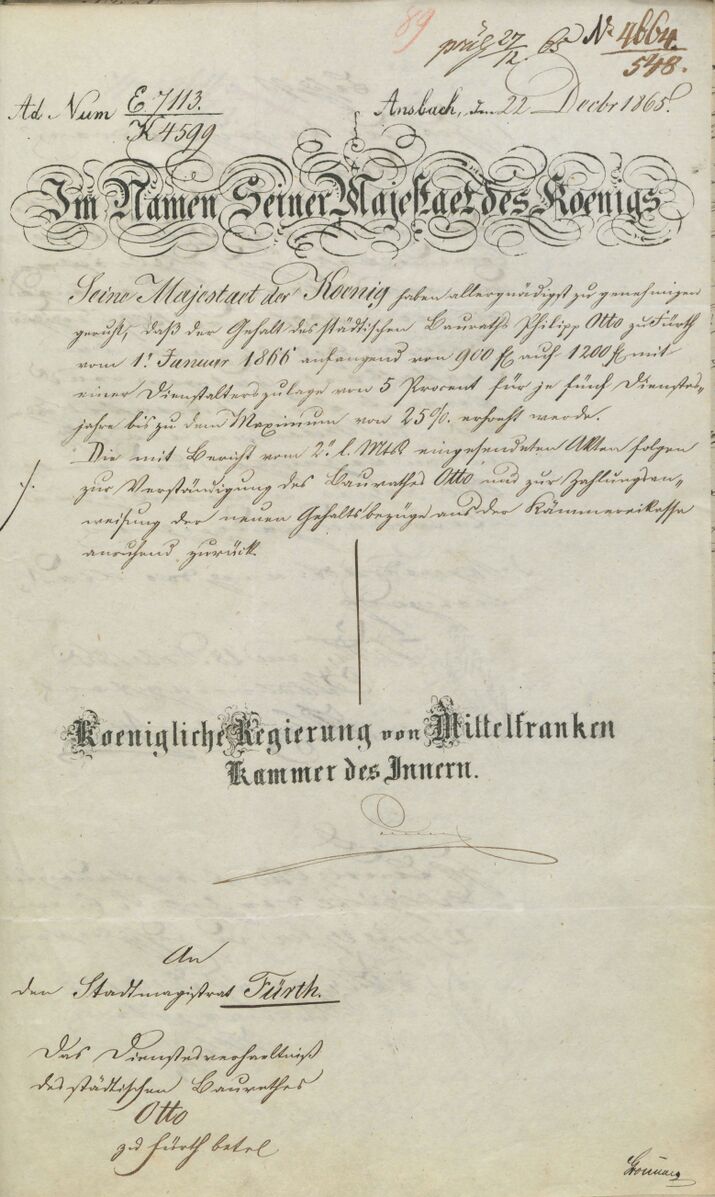 89
präs 27/12 65 № 4664.
548.
Ad Num E 7113. Ansbach, den 22 Decbr 1865.
K 4599
Im Namen Seiner Majestaet des Koenigs
Seine Majestaet der Koenig haben allergnädigst zu genehmigen
geruht, daß der Gehalt des städtischen Bauraths Philipp Otto zu Fürth
vom 1. Januar 1866 anfangend von 900 fl auf 1200 fl mit
einer Dienstalterszulage von 5 Procent für je fünf Dienstes-
jahre bis zu dem Maximum von 25%. erhoeht werde.
Die mit Bericht vom 2. l. Mts eingesendeten Akten folgen
zur Verständigung des Baurathes Otto und zur Zahlungsan-
weisung der neuen Gehaltsbezüge aus der Kämmereikasse
anruhend zurück.
Koenigliche Regierung von Mittelfranken
Kammer des Innern.
An
den Stadtmagistrat Fürth.
Das Dienstesverhaeltniß
des städtischen Baurathes
Otto
zu Fürth betel